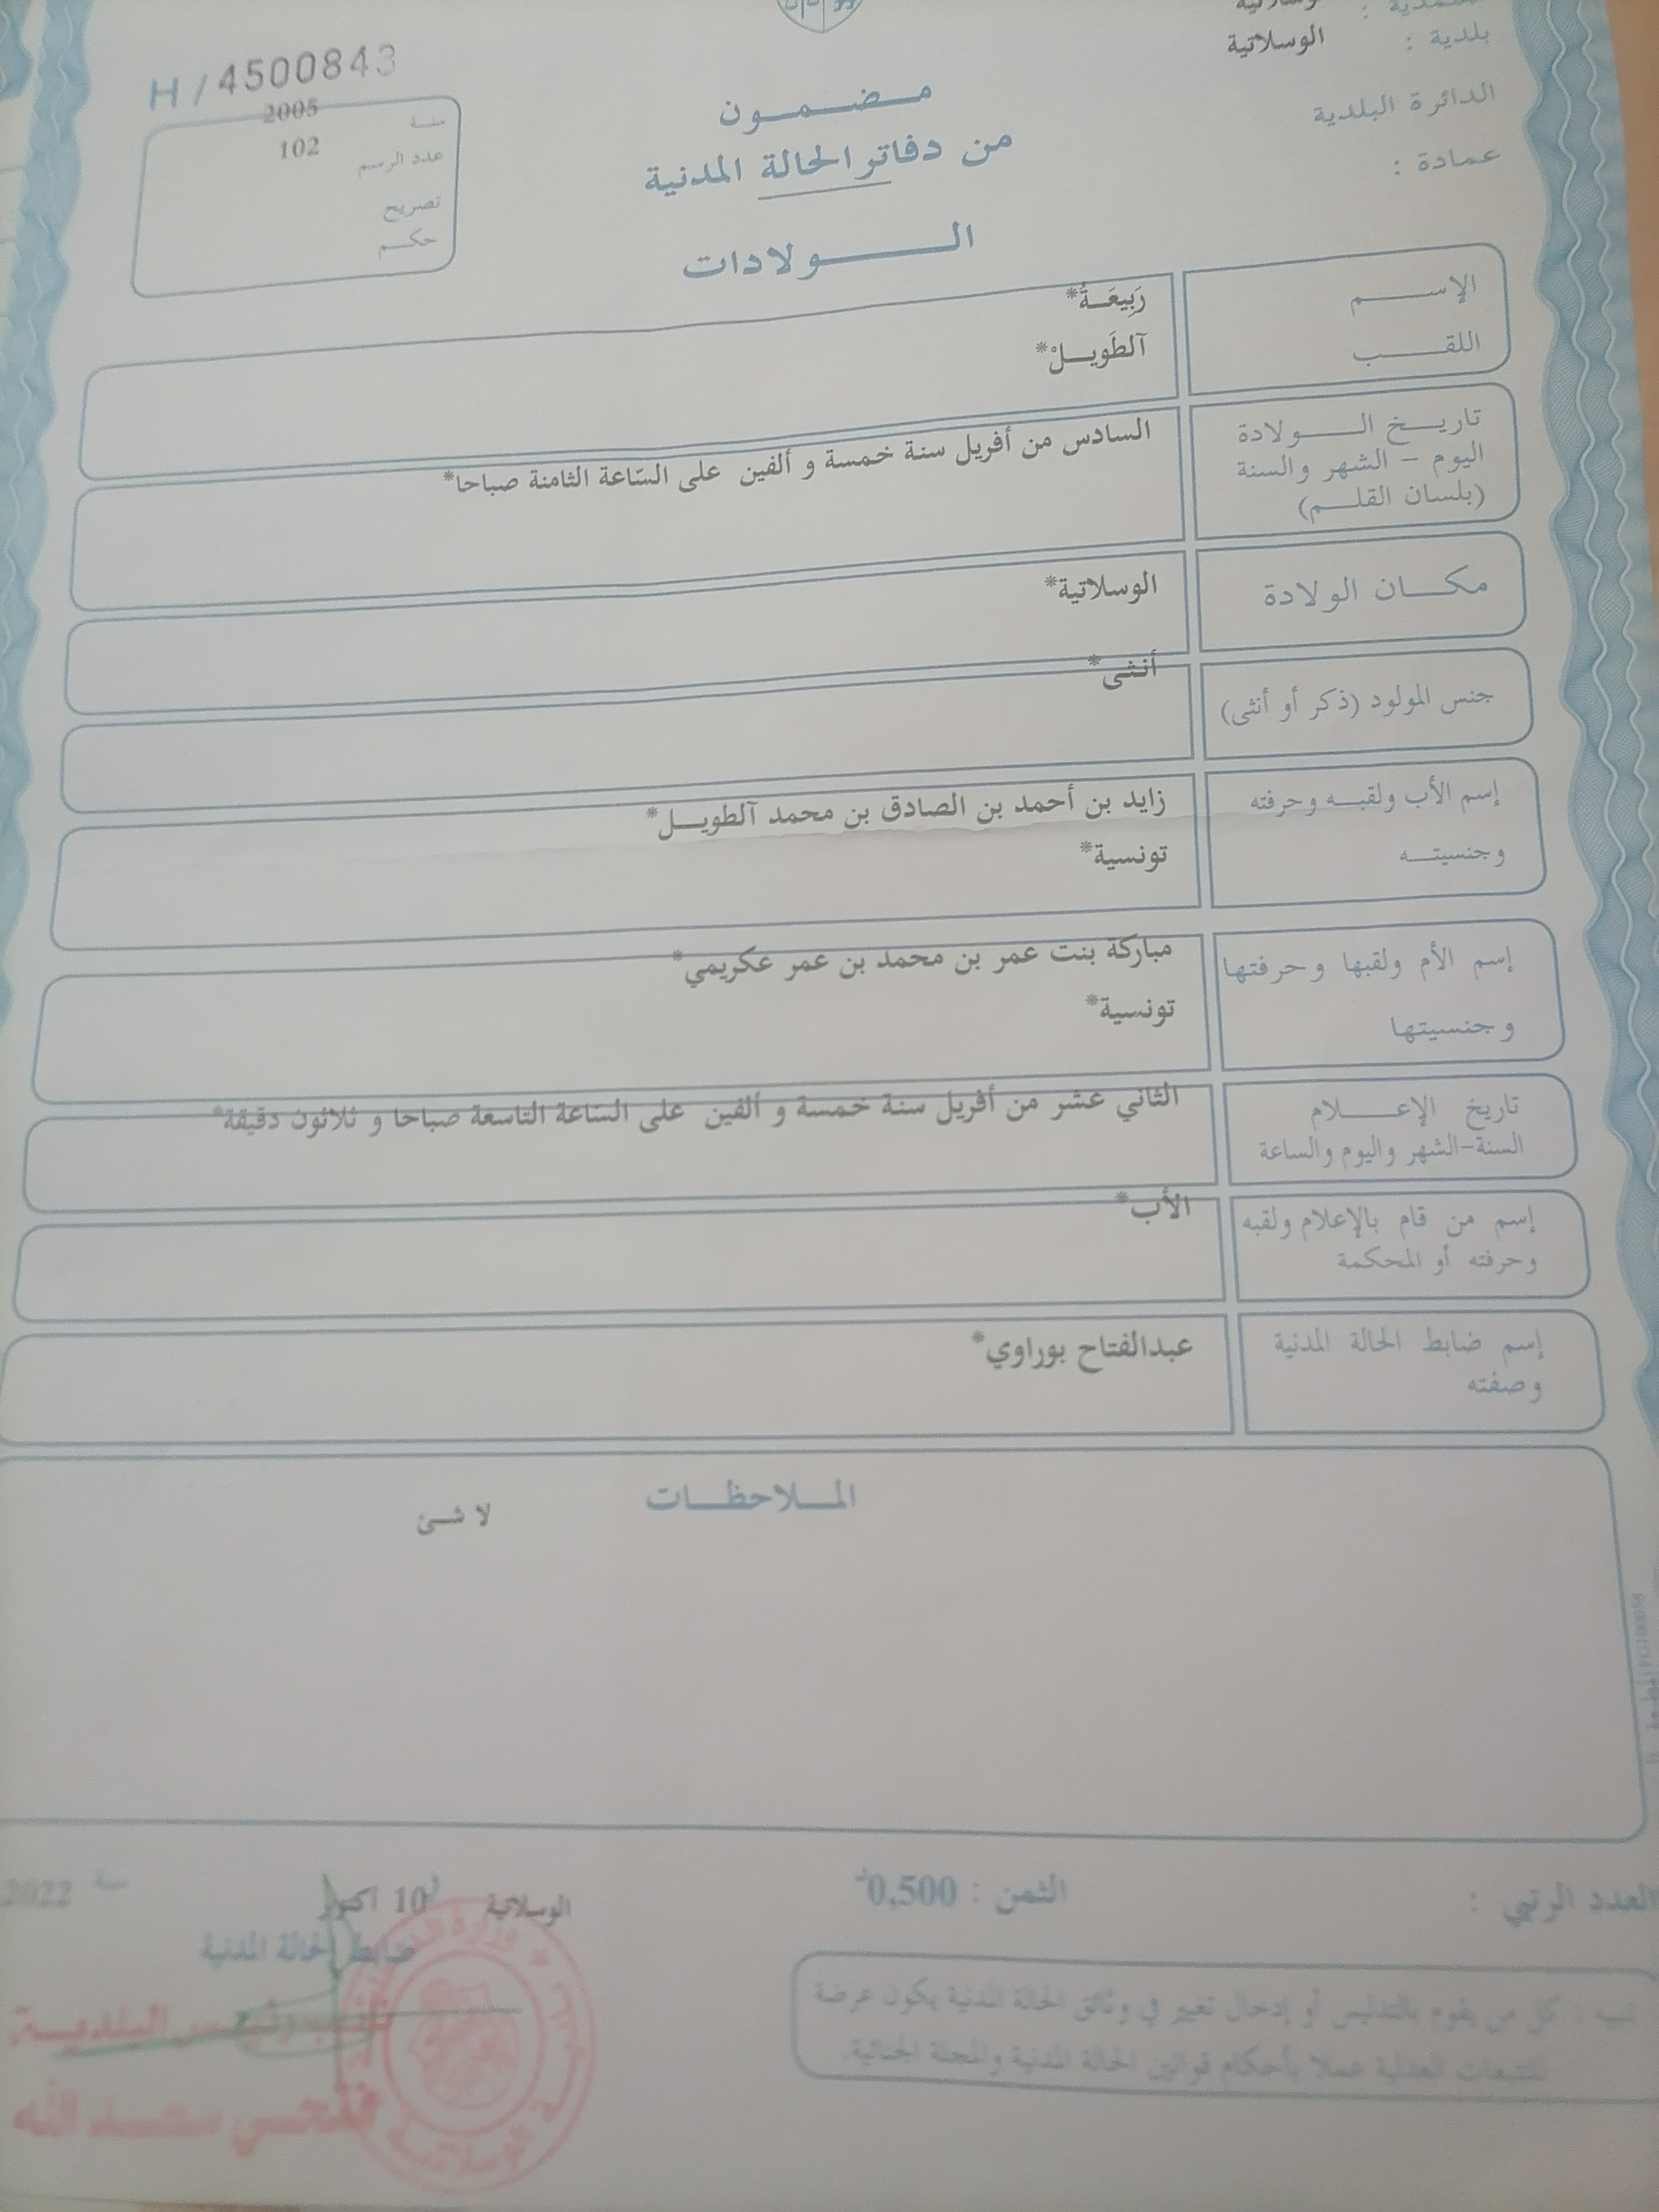 الوسلاتية
بلدية : الوسلاتية
الدائرة البلدية
عمادة :
H / 4500843
سنة 2005
عدد الرسم 102
تصريح
حكم
مضمون
من دفاتر الحالة المدنية
الولادات
الإسم رَبِيعَةُ*
اللقب آلطَويلْ*
تاريخ الولادة
اليوم - الشهر والسنة
(بلسان القلم)
السادس من أفريل سنة خمسة و ألفين على السّاعة الثامنة صباحا*
مكان الولادة الوسلاتية*
جنس المولود (ذكر أو أنثى) أنثى*
إسم الأب ولقبه وحرفته زايد بن أحمد بن الصادق بن محمد آلطويل*
وجنسيته تونسية*
إسم الأم ولقبها وحرفتها مباركة بنت عمر بن محمد بن عمر عكريمي*
وجنسيتها تونسية*
تاريخ الإعلام
السنة-الشهر واليوم والساعة
الثاني عشر من أفريل سنة خمسة و ألفين على السّاعة التاسعة صباحا و ثلاثون دقيقة*
إسم من قام بالإعلام ولقبه
وحرفته أو المحكمة
الأب*
إسم ضابط الحالة المدنية
وصفته
عبدالفتاح بوراوي*
الملاحظات
لا شئ
العدد الرتبي :
الثمن : 0,500د
الوسلاتية 10 اكتوبر سنة 2022
ضابط الحالة المدنية
نائب رئيس البلدية
فتحي سعد الله
تنبيه : كل من يقوم بالتدليس أو إدخال تغيير في وثائق الحالة المدنية يكون عرضة
للتتبعات العدلية عملا بأحكام قوانين الحالة المدنية والمجلة الجنائية.